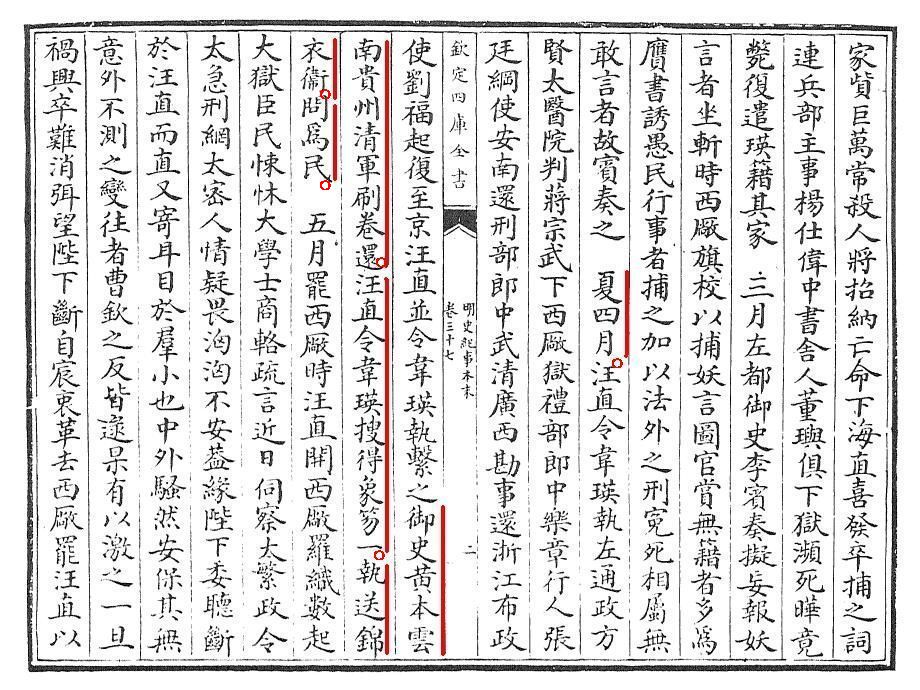 家貲巨萬常殺人將招納亡命下海直喜發卒捕之詞
連兵部主事楊仕偉中書舍人董璵俱下獄瀕死曄竟
斃復遣瑛籍其家　三月左都御史李賓奏擬妄報妖
言者坐斬時西厰旗校以捕妖言圖官賞無籍者多為
贋書誘愚民行事者捕之加以法外之刑寃死相屬無
敢言者故賓奏之　夏四月汪直令韋瑛執左通政方
賢太醫院判蔣宗武下西厰獄禮部郎中樂章行人張
廷綱使安南還刑部郎中武清廣西勘事還浙江布政
欽定四庫全書
明史紀事本末
卷三十七
二
使劉福起復至京汪直並令韋瑛執繫之御史黃本雲
南貴州清軍刷卷還汪直令韋瑛搜得象笏一執送錦
衣衞問為民　五月罷西厰時汪直開西厰羅織數起
大獄臣民悚怵大學士商輅疏言近日伺察太繁政令
太急刑網太宻人情疑畏洶洶不安葢緣陛下委聽斷
於汪直而直又寄耳目於羣小也中外騷然安保其無
意外不測之變徃者曹欽之反皆逯杲有以激之一旦
禍興卒難消弭望陛下斷自宸衷革去西厰罷汪直以